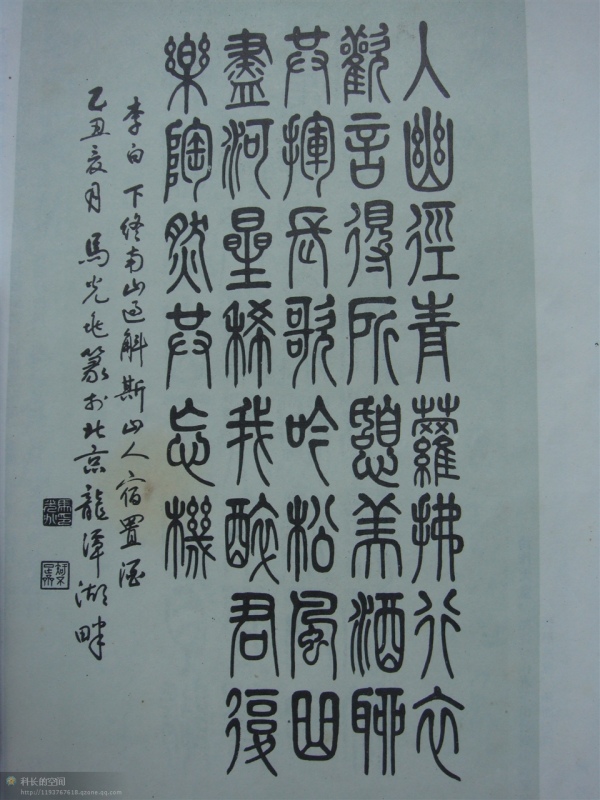 入幽徑青蘿拂行衣
歡言得所憩美酒聊
共揮長歌吟松風曲
盡河星稀我醉君復
樂陶然共忘機
李白 下終南山過斛斯山人宿置酒
乙丑夏月 馬光兆篆於北京龍潭湖畔
科长的空间
http://1193767618.qzone.qq.com